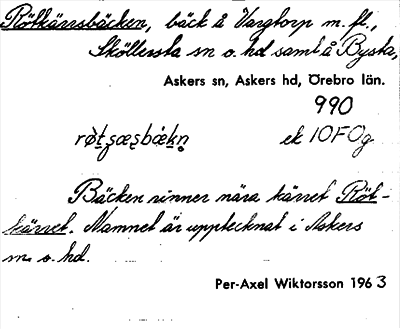 Rötkärrsbäcken, bäck å Vargtorp m. fl.,
Sköllersta sn o. hd samt å Bysta,
Askers sn, Askers hd, Örebro län.
990
ek 10F0g
Bäcken rinner nära kärret Röt-
kärret. Namnet är upptecknat i Askers
sn o. hd.
Per-Axel Wiktorsson 1963